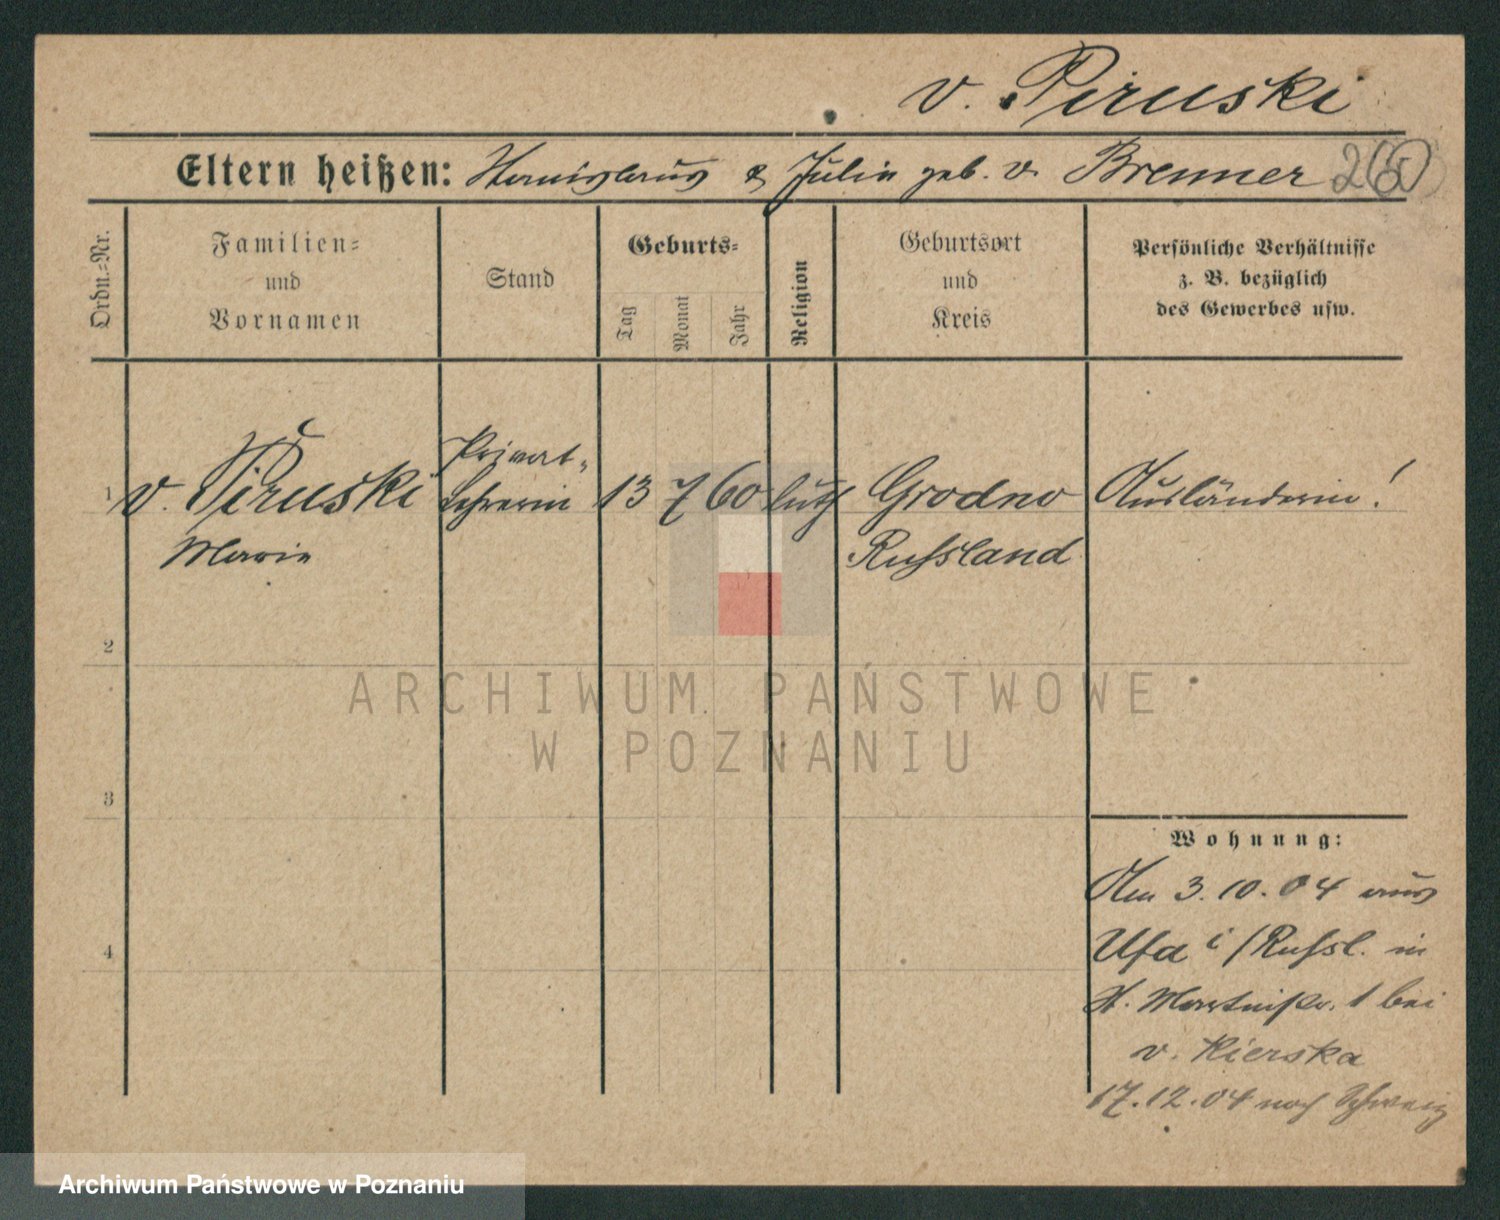 v. Piruski
Eltern heißen: Stanislaus & Julia geb. v. Brenner 260
Ordn.-Nr.
Familien-
und
Vornamen
Stand
Geburts-
Tag
Monat
Jahr
Religion
Geburtsort
und
Kreis
Persönliche Verhältnisse
z. B. bezüglich
des Gewerbes usw.
1 v. Piruski Privat- 13 7 60 luth Grodno Ausländerin!
Marie Lehrerin Russland
2
3
4
ARCHIWUM PAŃSTWOWE
W POZNANIU
Wohnung:
Am 3.10.04 aus
Ufa i/Russl. in
1 bei
v. Kierska
17.12.04 nach Schweiz
Archiwum Państwowe w Poznaniu